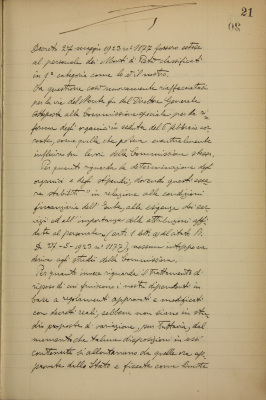 21
20
Decreto 27 maggio 1923 n° 1177 fossero estese
al personale dei Monti di Pietà classificati
in 1ª categoria come lo è il nostro.
La questione così nuovamente
per la via del Monte fu dal Direttore Generale
sottoposta alla Commissione speciale per la
forma degli organici in seduta del 5 febbraio
come quella che poteva eventualmente
influire sui lavori della Commissione stessa.
Per quanti riguarda la determinazione degli
organici e degli stipendi, dovendo questi esse-
re stabiliti in relazione alle condizioni
finanziarie dell'Ente, alle esigenze dei ser-
vizi ed all'importanza delle attribuzioni affi-
date al personale (art. 1 lett.
D. 27-5-1923 n° 1177), nessun
deriva agli studi della Commissione.
Per quanto invece riguarda il trattamento di
riposo di cui fruiscono i nostri dipendenti in
base a regolamenti approvati e modificati
con decreti reali, sebbene non siano in stu-
dio proposte di variazione, pur tuttavia, dal
momento che talune disposizioni in essi
contenute si allontanano da quelle
provate dallo Stato e fissate come limite